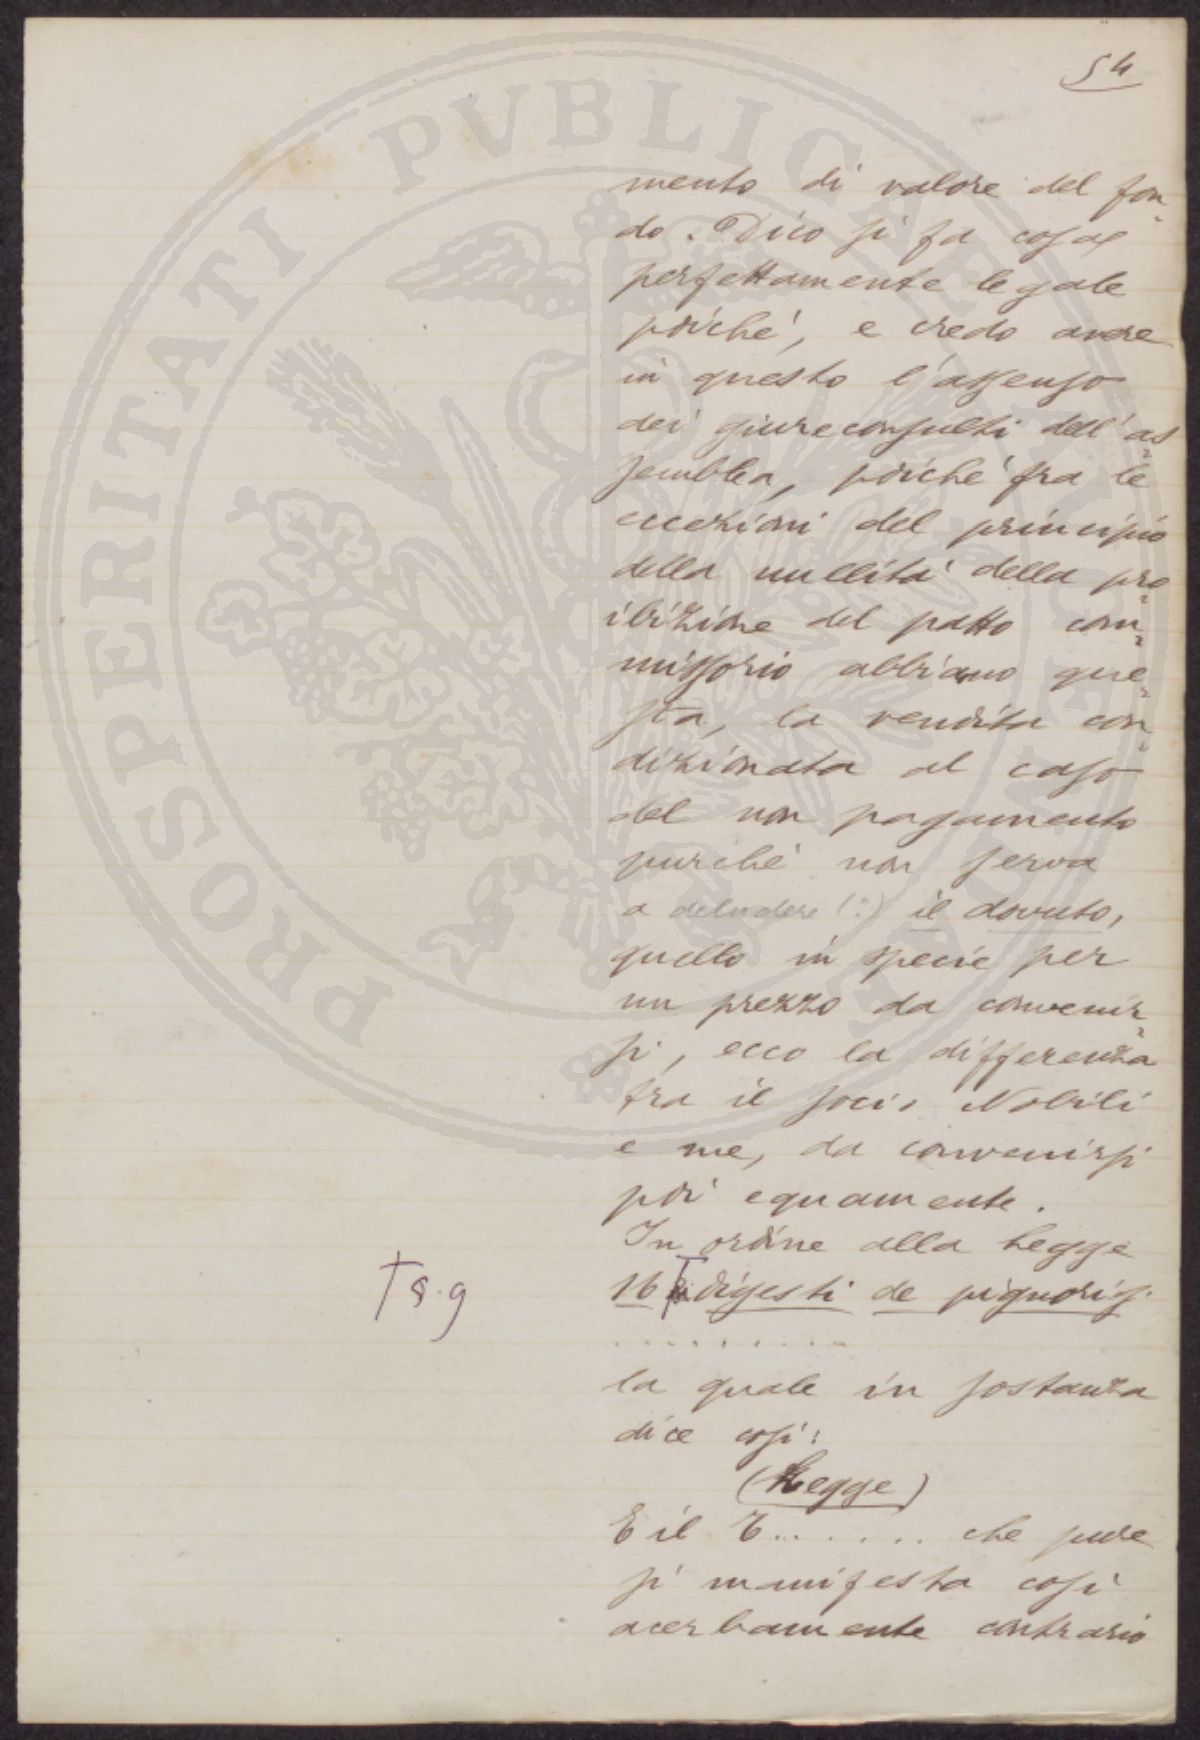 54
mento di valore del fon-
do. Dico si fa cosa
perfettamente legale
poiché, e credo avere
in questo l'assenso
dei giureconsulti dell'as-
semblea, poiché fra le
eccezioni del principio
della nullità della pro-
ibizione del patto com-
missorio abbiamo que-
sta, la vendita con-
dizionata al caso
del non pagamento
purché non serva
a deludere (?) il dovuto,
quello in specie per
un prezzo da convenir-
si, ecco la differenza
fra il socio Nobili
e me, da convenirsi
poi equamente.
In ordine alla Legge
16 digesti de pignoris
. . . . . . . . . .
la quale in sostanza
dice così:
(Legge)
E il T....... che pure
si manifesta così
acerbamente contrario
T 8. 9
PROSPERITATI PUBLICAE AUGENDAE